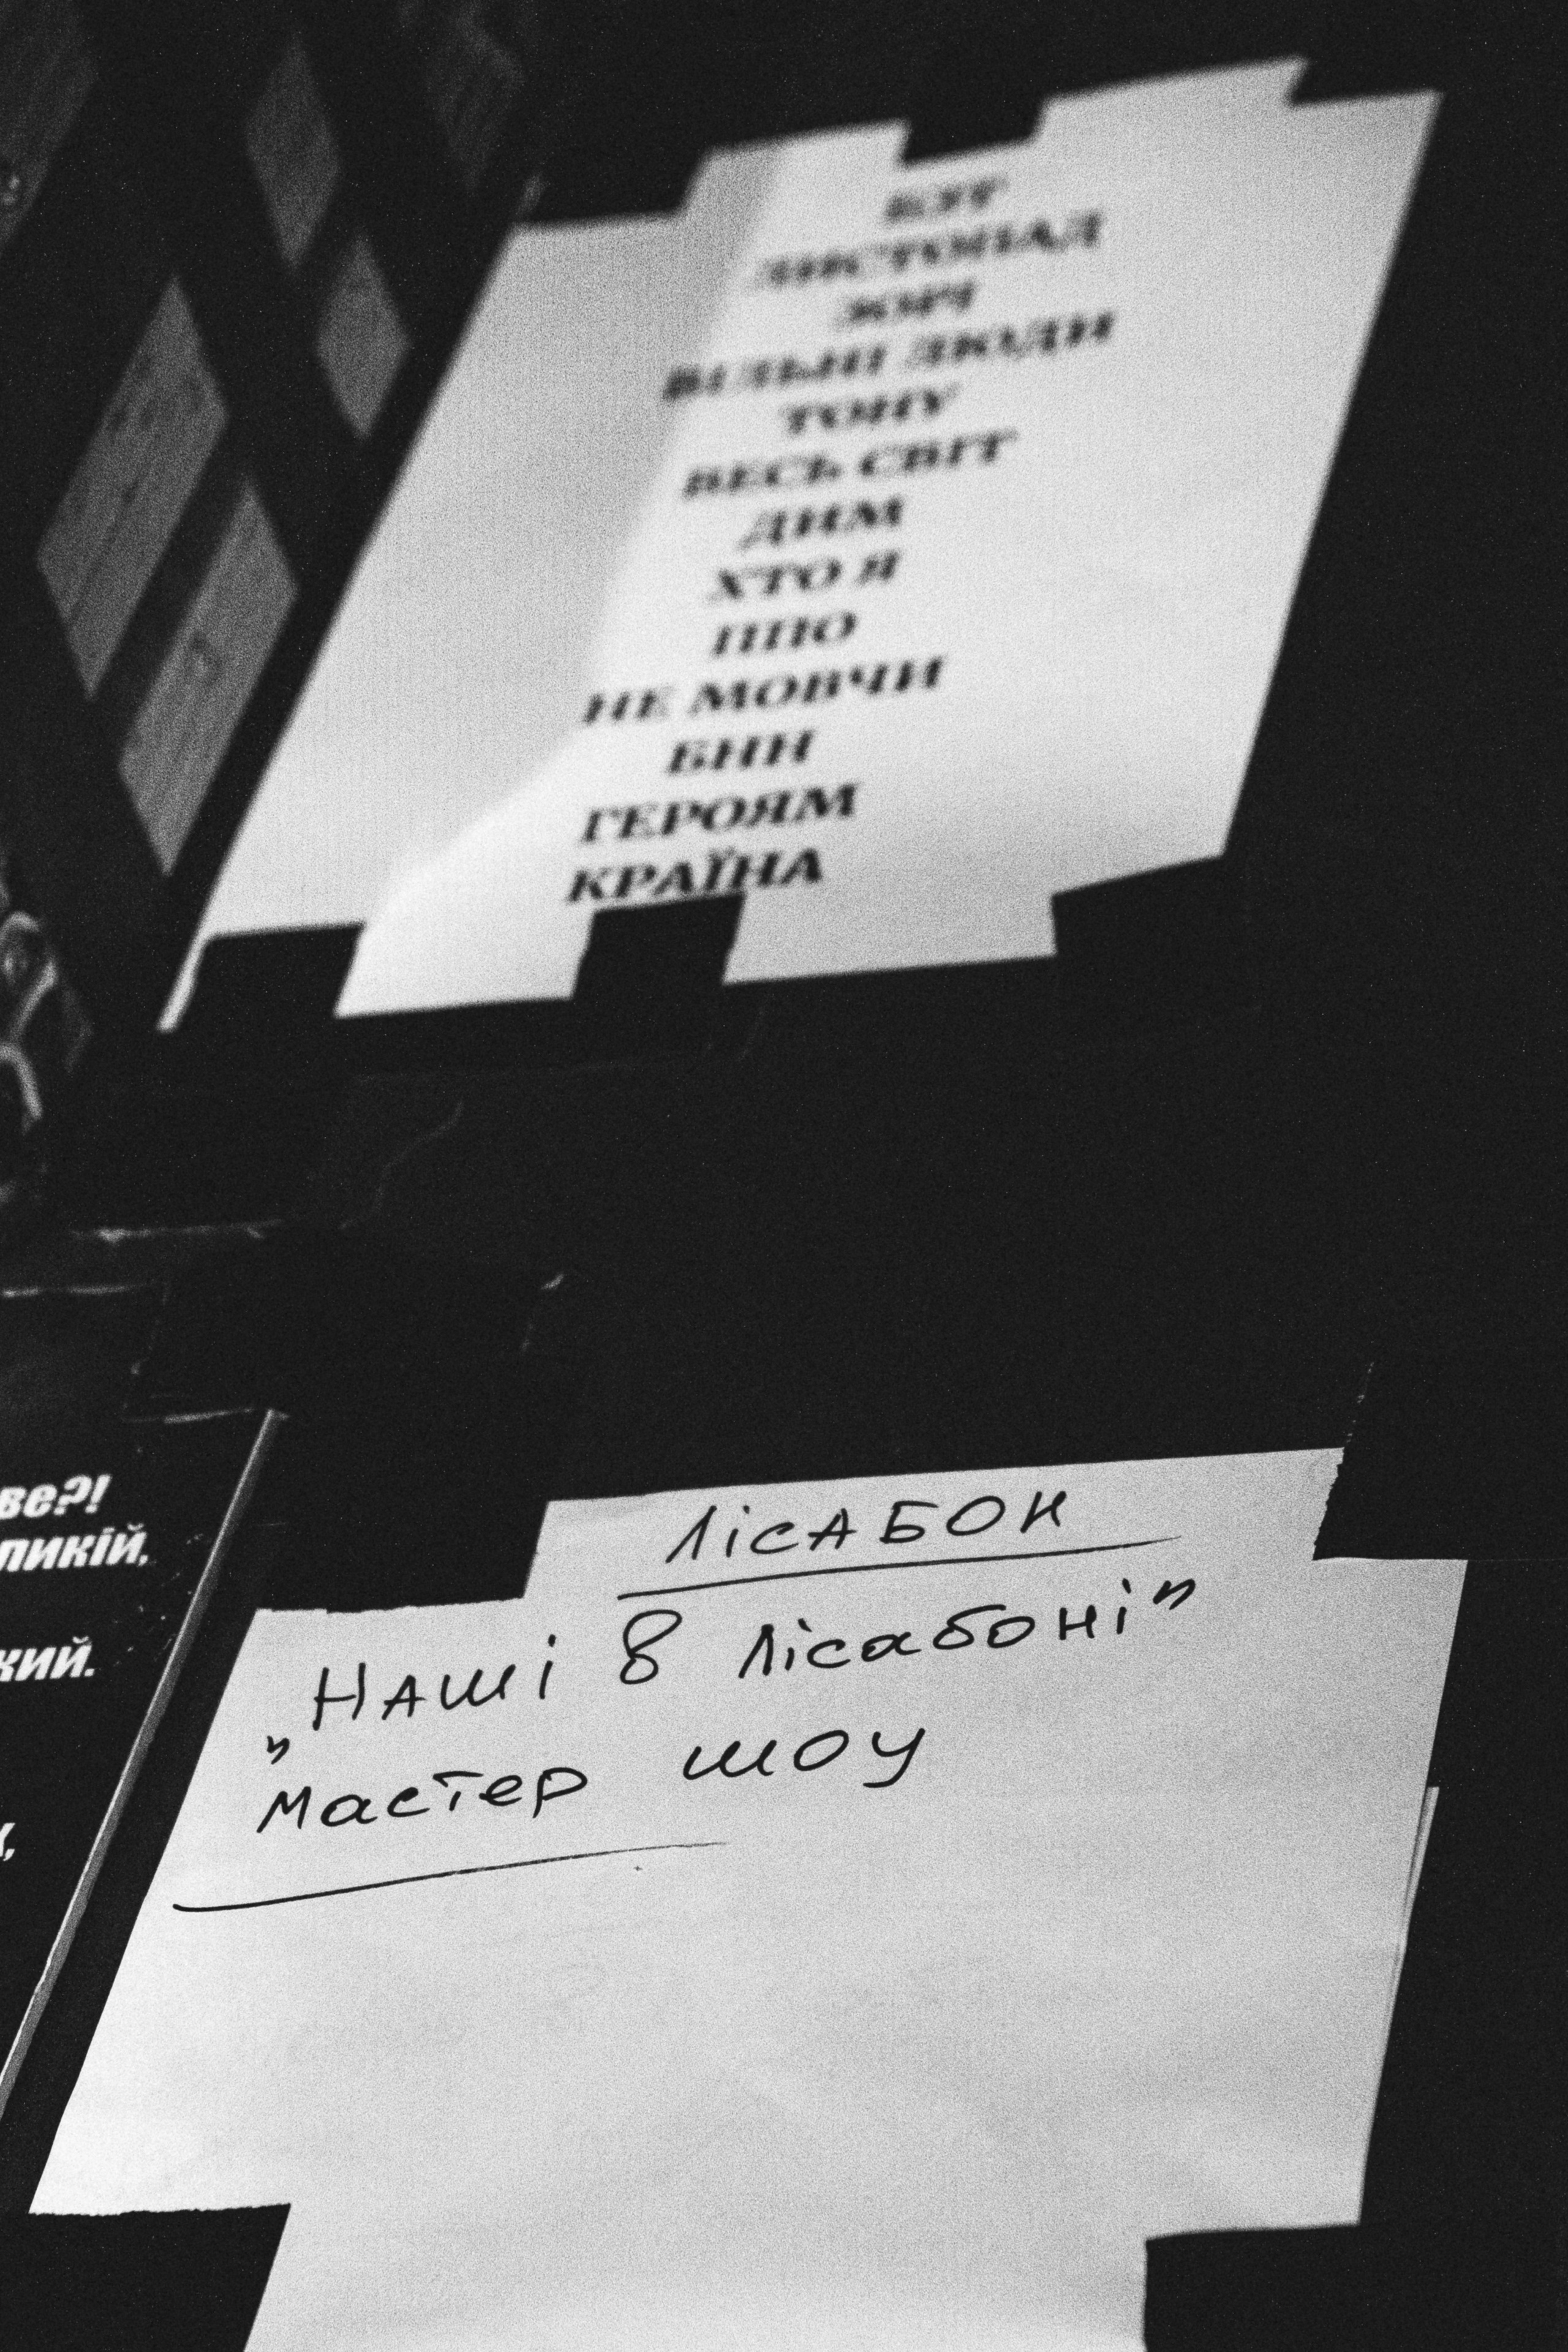 ЛИСТОПАД
ЗОРІ
ВІЛЬНІ ЛЮДИ
ТОНУ
ВЕСЬ СВІТ
ДИМ
ХТО Я
ППО
НЕ МОВЧИ
БНН
ГЕРОЯМ
КРАЇНА
ве?!
ликій,
кий.
ЛІСАБОН
„НАШІ В Лісабоні”
мастер шоу